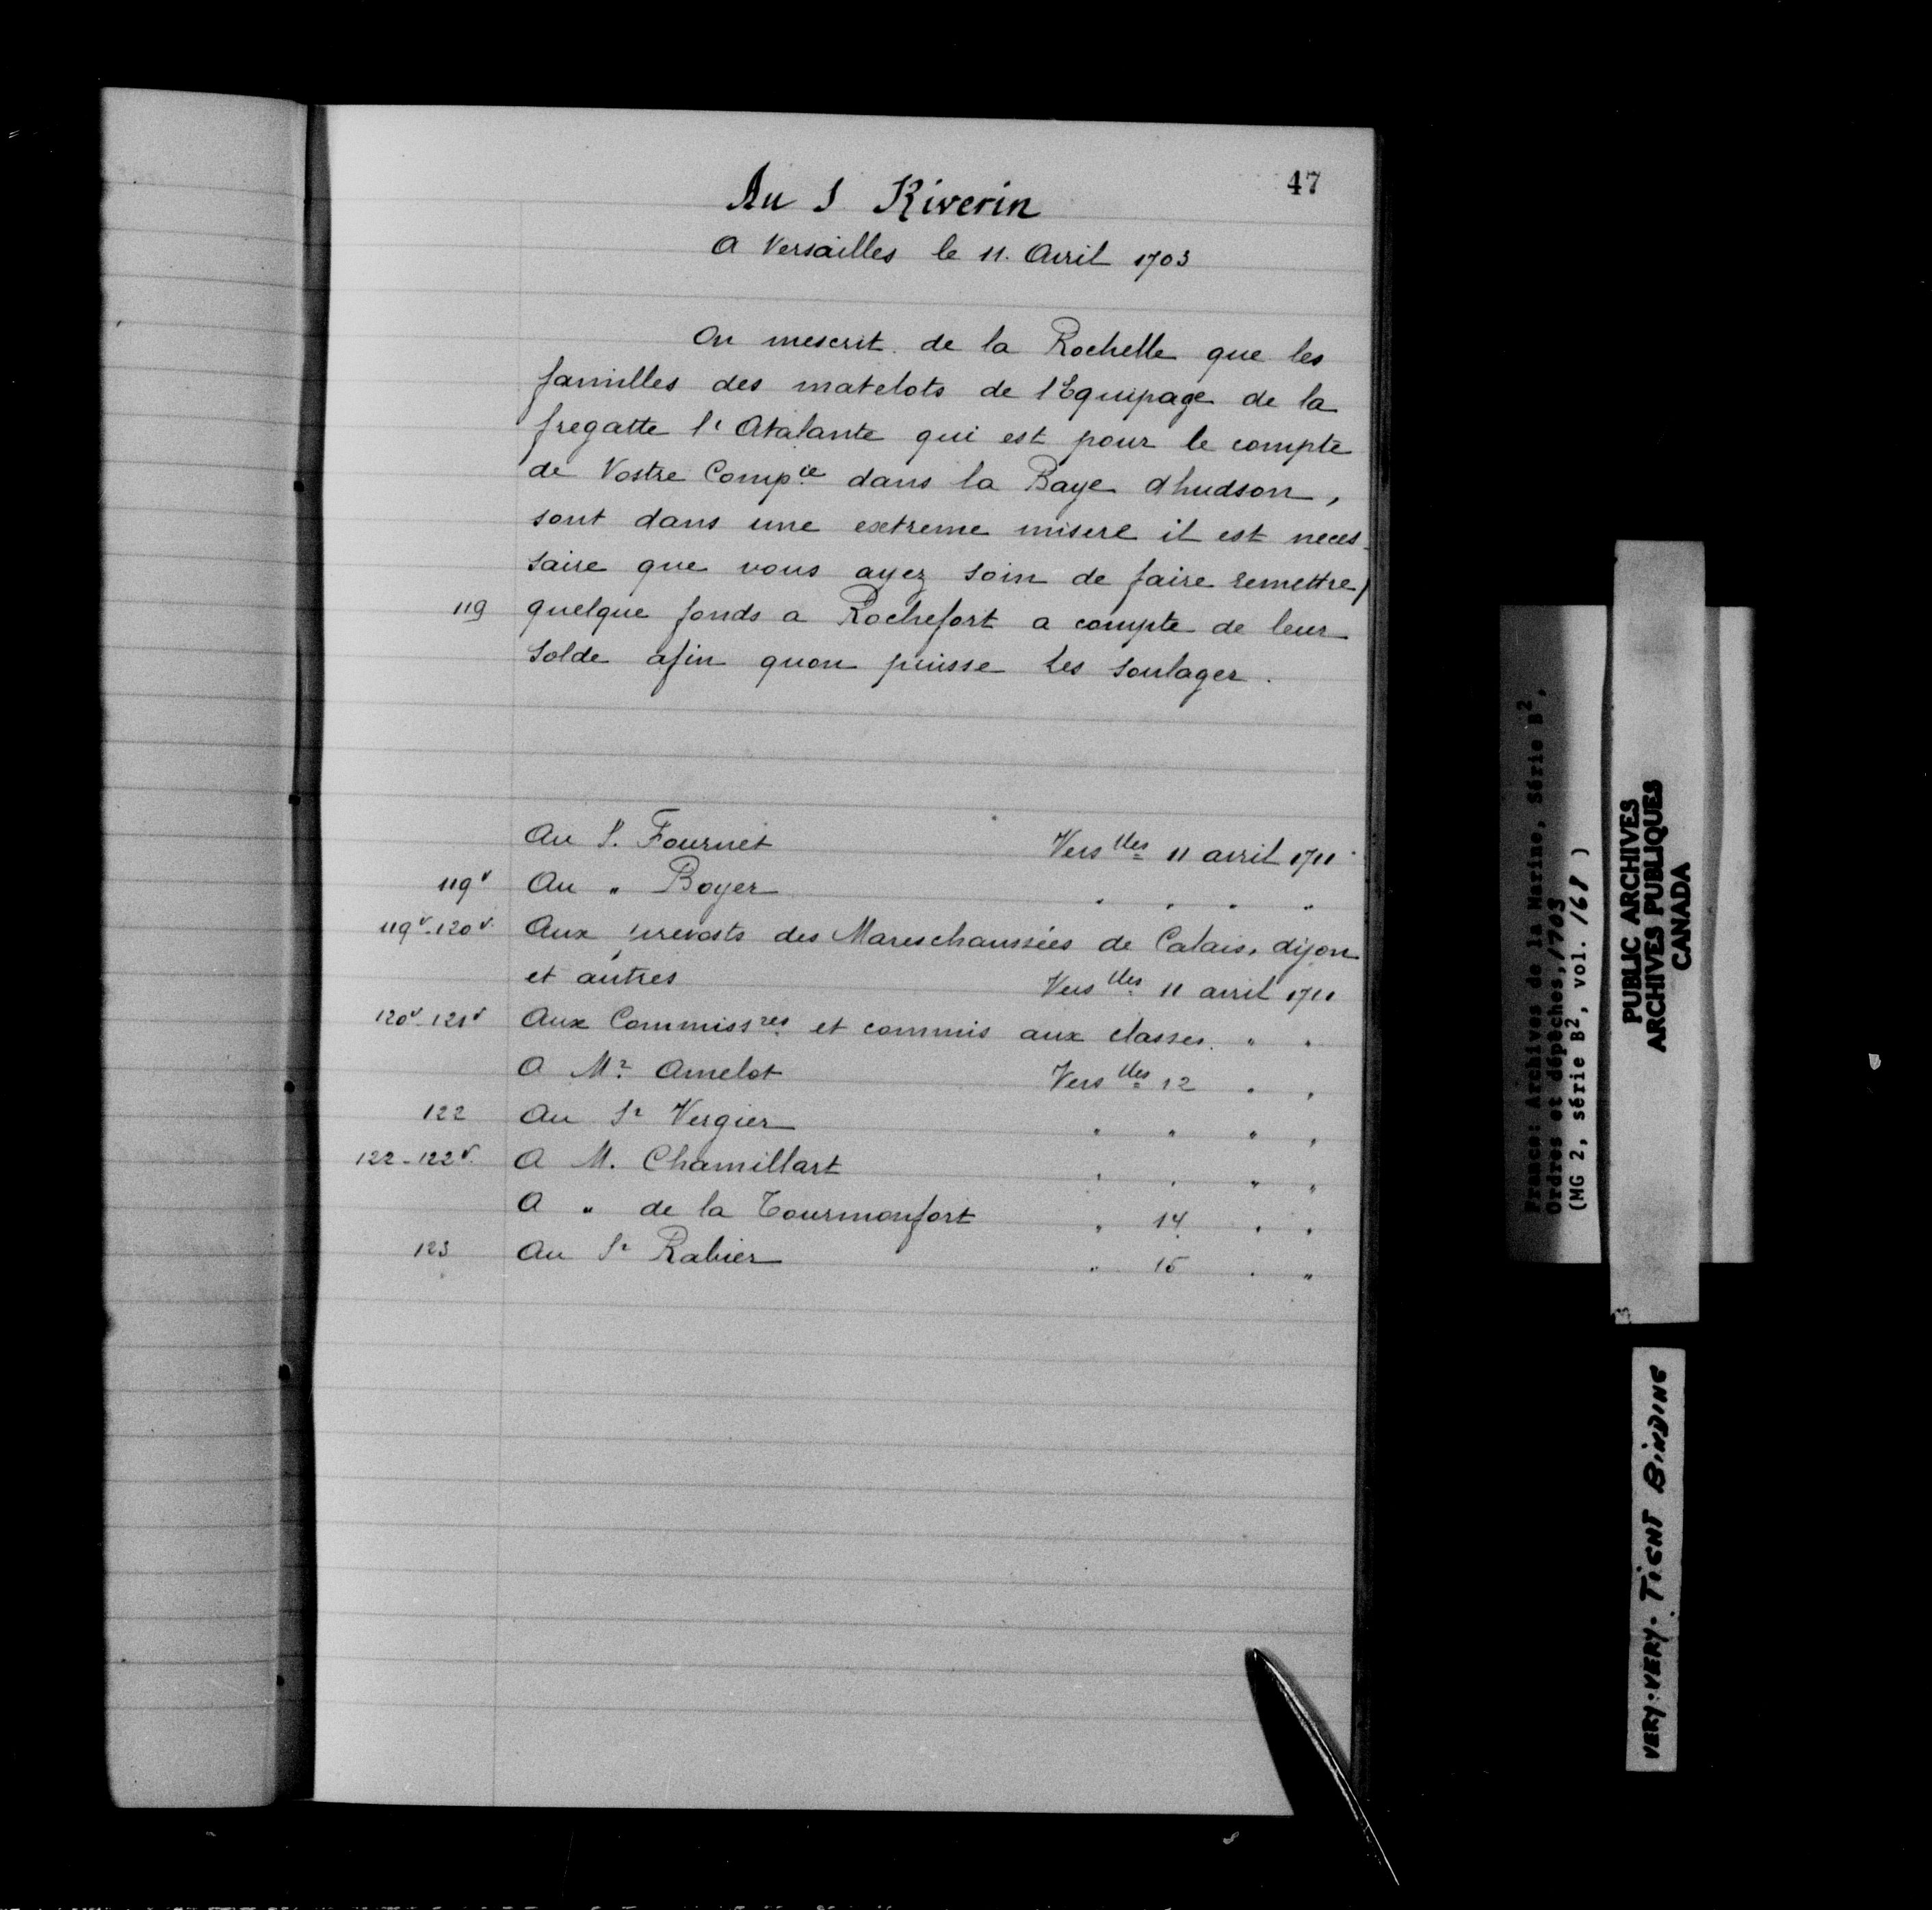 47
Au S Riverin
A Versailles le 11. Avril 1703
On mescrit de la Rochelle que les
familles des matelots de l'Equipage de la
fregatte l'Atalante qui est pour le compte
de Vostre Comp.ie dans la Baye dhudson,
sont dans une extreme misere il est neces-
saire que vous ayez soin de faire remettre/
119 quelque fonds a Rochefort a compte de leur
solde afin quon puisse les soulager.
Au S. Fournet Vers lles 11 avril 1711
119v Au " Boyer " " " "
119v-120v Aux prevosts des Mareschaussées de Calais, dijon
et autres Vers lles 11 avril 1711
120v-121v Aux Commissres et commis aux classes. " "
A Mr Amelot Vers lles 12 " "
122 Au Sr Vergier " " " "
122-122v. A M. Chamillart " " " "
A " de la Tourmonfort " 14 " "
123 Au Sr Rabier " 15 " "
France: Archives de la Marine, Série B2,
Ordres et dépêches, 1703
(MG 2, série B2, vol. 168 )
PUBLIC ARCHIVES
ARCHIVES PUBLIQUES
CANADA
VERY·VERY· TIGHT BINDING